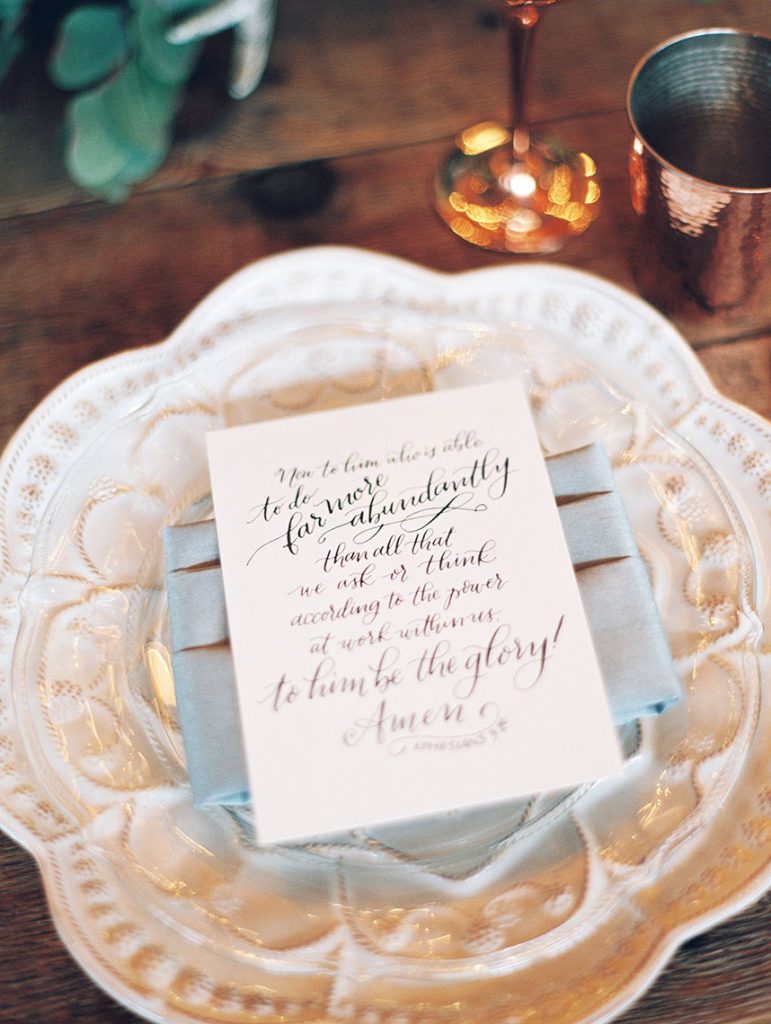 Now to him who is able
to do
far more
abundantly
than all that
we ask or think
according to the power
at work within us.
to him be the glory!
Amen
EPHESIANS